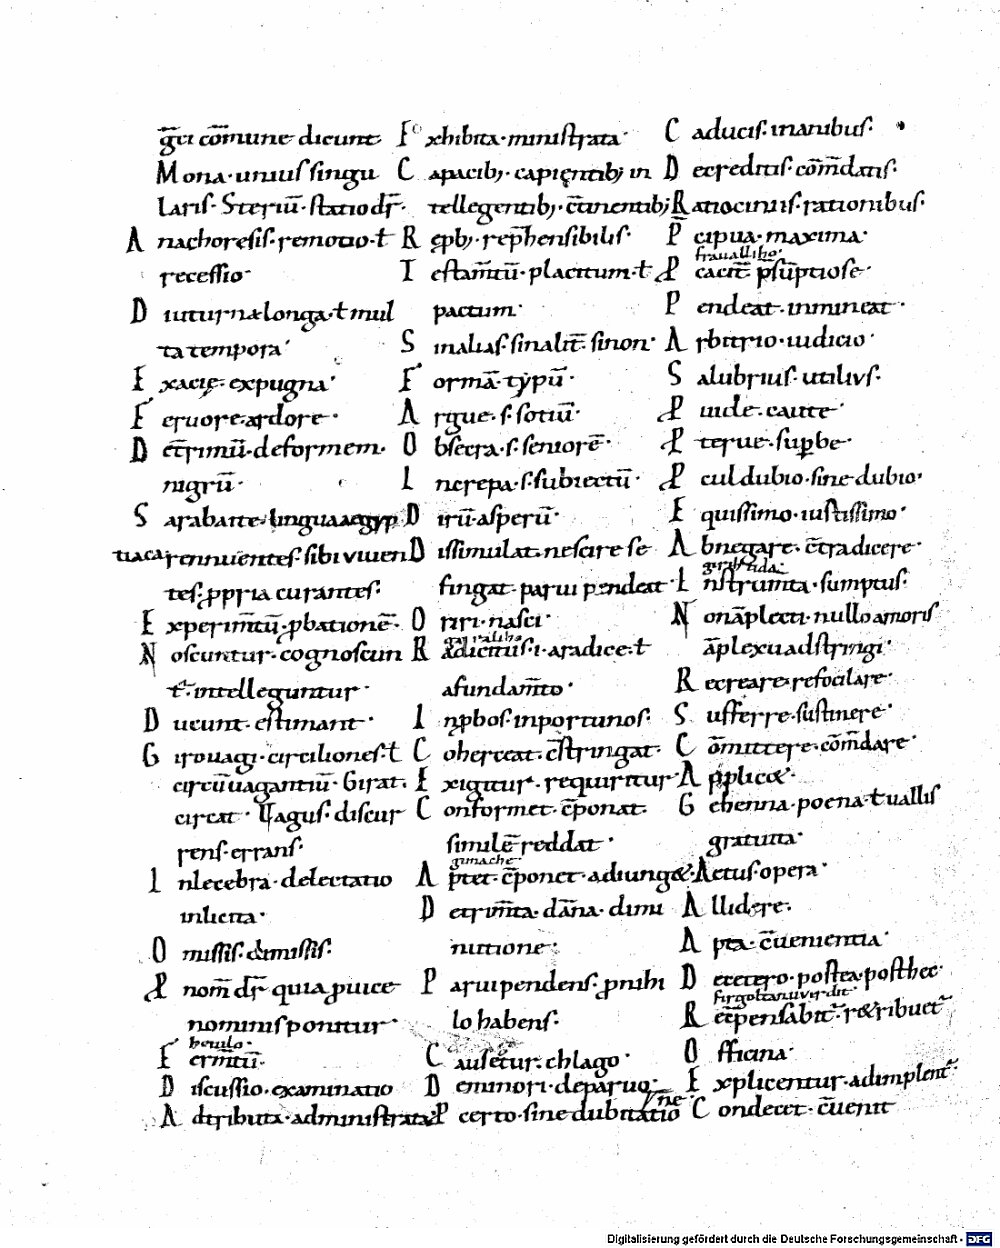 g̅ci com̅une dicunt
Mona· unius singu
laris· Steriu̅· statio dr̅·
Anachoresis· remotio· ł
recessio·
Diuturna longa· ł mul
ta tempora·
Exacie· expugna·
Feruore· ardore·
Det̅rimu̅· deformem·
nigru̅·
Sarabaite· lingua aegyp
tiaca rennuentes· sibi viuen
tes· ꝓpria curantes·
Experim̅tu̅· ꝓbatione̅·
Noscuntur· cognoscun
t᷑· intelleguntur·
Ducunt· estimant·
Girouagi· circiliones· ł
circu̅uagantiu̅· Girat·
circat· Uagus· discur
rens· errans·
Inlecebra· delectatio
inlicita·
Omissis· dimissis·
P̲nom̅ dr̅ quia ꝓ uice
nominis ponitur·
heuilo·
Ferm̅tu̅·
Discussio· examinatio
Adtributa· administrata
Exhibita· ministrata·
Capacib;· capientib; in
tellegentib;· c̅tinentib;
Rep̱b;· rep̅hensibilis·
Testam̅tu̅· placitum· ł
pactum·
Sin alias· sin alit̅· sinon·
Forma̅· typu̅·
Argue· s· sotiu̅·
Obsecra· s· seniore̅·
Increpa· s· subiectu̅·
Diru̅· asperu̅·
Dissimulat· nescire se
fingat· parui pendeat·
Oriri· nasci·
Radicitus· i· a radice· ł
a fundam̅to·
Inp̱bos· inportunos·
Coherceat· c̅stringat·
Exigitur· requiritur
Conformet· c̅ponat·
simile̅ reddat·
gimache·
Aptet· c̅ponet· adiung&·
Detrim̅ta· da̅na· dimi
nutione·
Paruipendens· ꝓ nihi
lo habens·
Causetur· chlago·
De minori· de paruo·
P̲certo· sine dubitatione
Caducis· inanibus·
Decreditis· com̅datis·
Ratiociniis· rationibus·
P̅cipua· maxima·
frauallihho·
P̲cacit̅· p̱su̅ptiose·
Pendeat· inmineat·
Arbitrio· iudicio·
Salubrius· utilius·
P̲uide· caute·
P̲terue· sup̱be·
P̲cul dubio· sine dubio·
Equissimo· iustissimo·
Abnegare· c̅tradicere·
Instrum̅ta· sumptus·
Non a̅plecti· nullo amoris
a̅plexu adstringi·
Recreare· refocilare·
Sufferre· sustinere·
Com̅ittere· com̅dare·
Applic&·
Gehenna· poena· ł uallis
gratuita·
Actus· opera·
Allidere·
Apta· c̅uenientia·
De cetero· postea· posthec·
firgoltan uvirdit·
Rec̅pensabit᷑· r&ribuet᷑
Officina·
Explicentur· adimplent᷑·
Condecet· c̅uenit
Digitalisierung gefördert durch die Deutsche Forschungsgemeinschaft - DFG